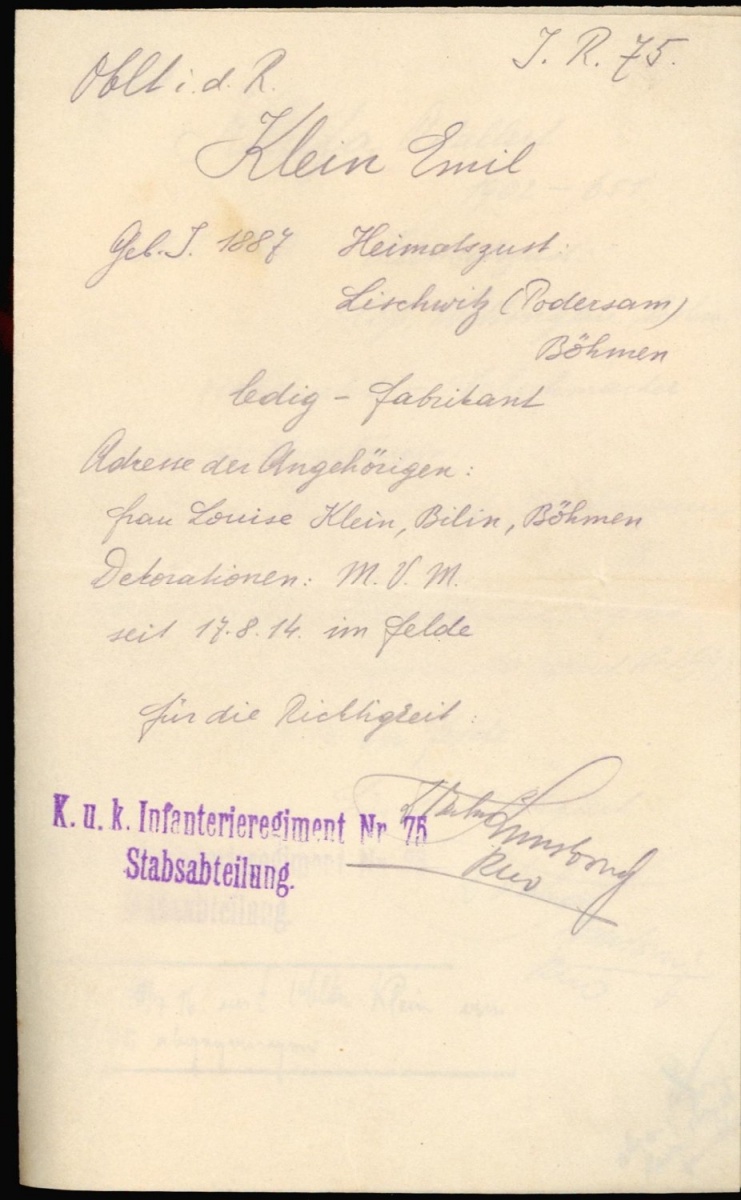 J. R. 75.
Oblt i. d. R.
Klein Emil
Geb. J. 1887 Heimatszust:
Lischwitz (Podersam)
Böhmen
ledig - Fabrikant
Adresse der Angehörigen:
Frau Louise Klein, Bilin, Böhmen
Dekorationen: M. V. M.
seit 17.8.14. im Felde
für die Richtigkeit:
K. u. k. Infanterieregiment Nr. 75
Stabsabteilung.